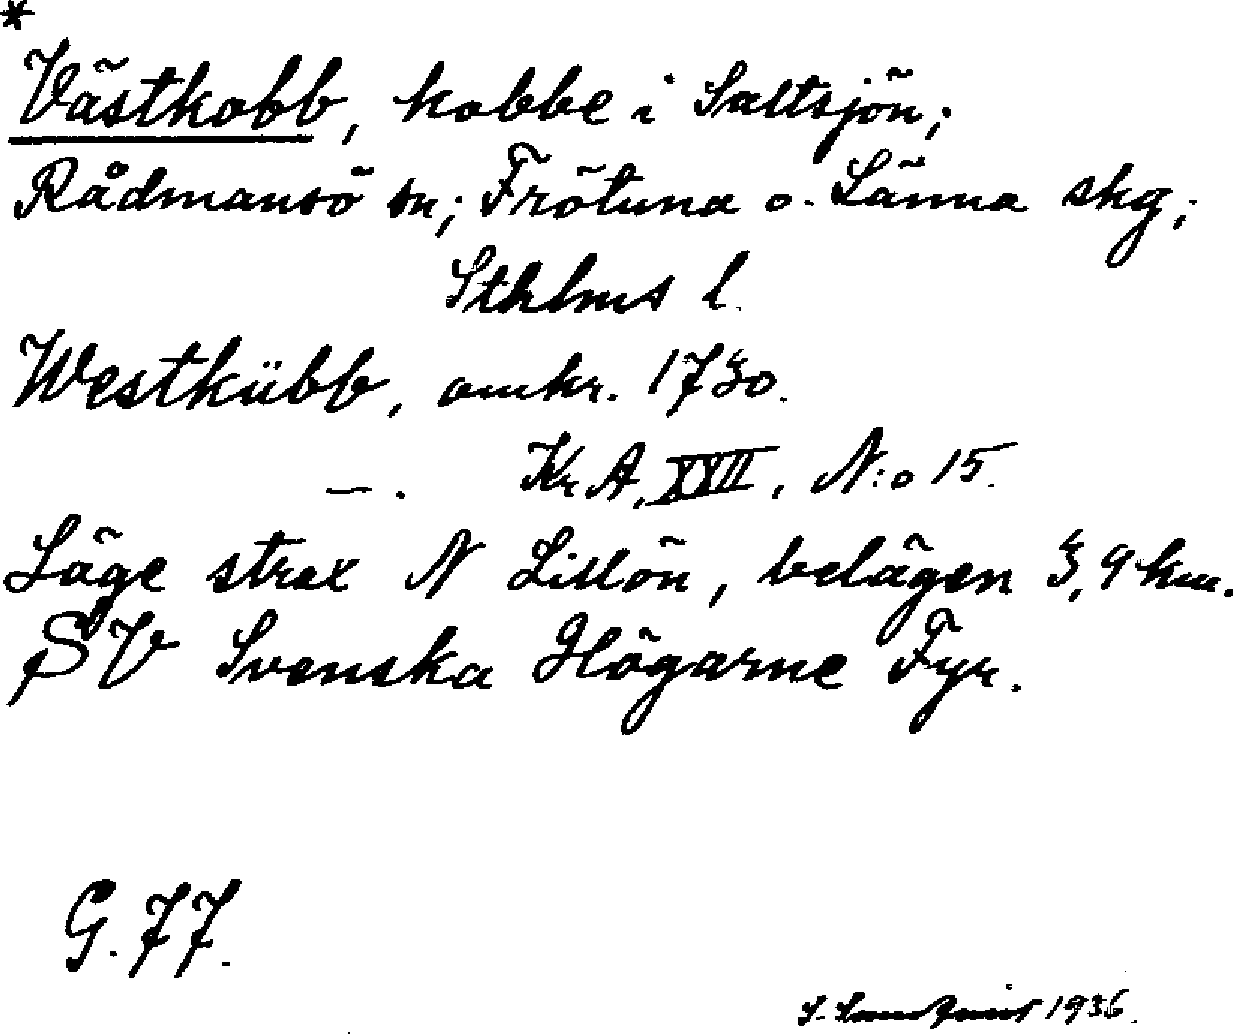 *
Västkobb, kobbe i Saltsjön;
Rådmansö sn; Frötuna o. Länna skg;
Sthlms l.
Westkübb, omkr. 1730.
—. Kr A, XXII, N:o 15.
Läge strax N Lillön, belägen 3,9 km.
SV Svenska Högarne Fyr.
G. 77.
S. 1936.